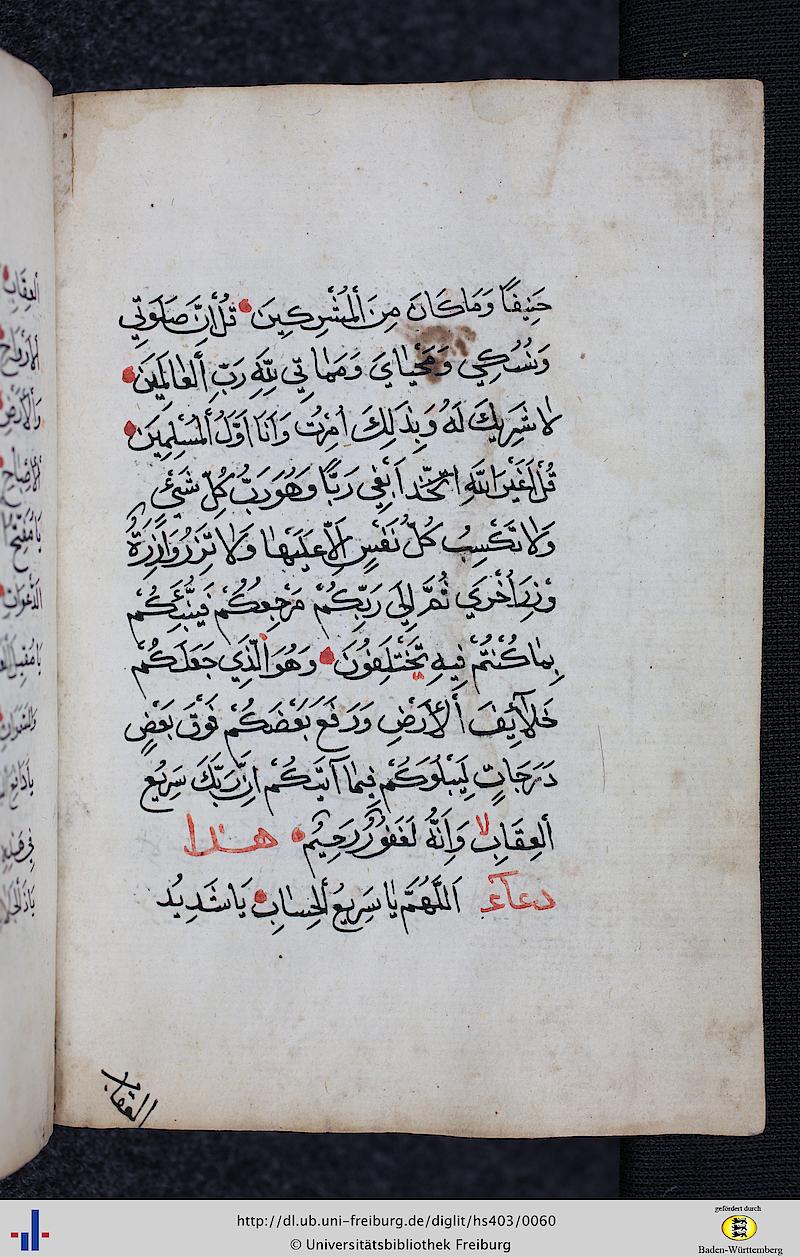 حَنِيفًا وَمَاكَانَ مِنَ الْمُشْرِكِينَ قُلْ اِنَّ صَلَوتِي
وَنُسُكِي وَمَحْيَايَ وَمَمَاتِي لِلّٰهِ رَبِّ الْعَالَمِينَ
لَا شَرِيكَ لَهُ وَبِذٰلِكَ اُمِرْتُ وَاَنَا اَوَّلُ الْمُسْلِمِينَ
قُلْ اَغَيْرَ اللّٰهِ اَبْغِي رَبًّا وَهُوَ رَبُّ كُلِّ شَيْءٍ
وَلَا تَكْسِبُ كُلُّ نَفْسٍ اِلَّا عَلَيْهَا وَلَا تَزِرُ وَازِرَةٌ
وِزْرَ اُخْرَي ثُمَّ اِلَي رَبِّكُمْ مَرْجِعُكُمْ فَيُنَبِّئُكُمْ
بِمَا كُنْتُمْ فِيهِ تَخْتَلِفُونَ وَهُوَ الَّذِي جَعَلَكُمْ
خَلَآئِفَ الْأَرْضِ وَرَفَعَ بَعْضَكُمْ فَوْقَ بَعْضٍ
دَرَجَاتٍ لِيَبْلُوَكُمْ فِيمَا آتَيٰكُمْ اِنَّ رَبَّكَ سَرِيعُ
الْعِقَابِ لا وَاِنَّهُ لَغَفُورٌ رَحِيمٌ هذا
دعآء اَللّٰهُمَّ يَا سَرِيعُ الْحِسَابِ يَا شَدِيدُ
العقاب
http://dl.ub.uni-freiburg.de/diglit/hs403/0060
© Universitätsbibliothek Freiburg
gefördert durch
Baden-Württemberg